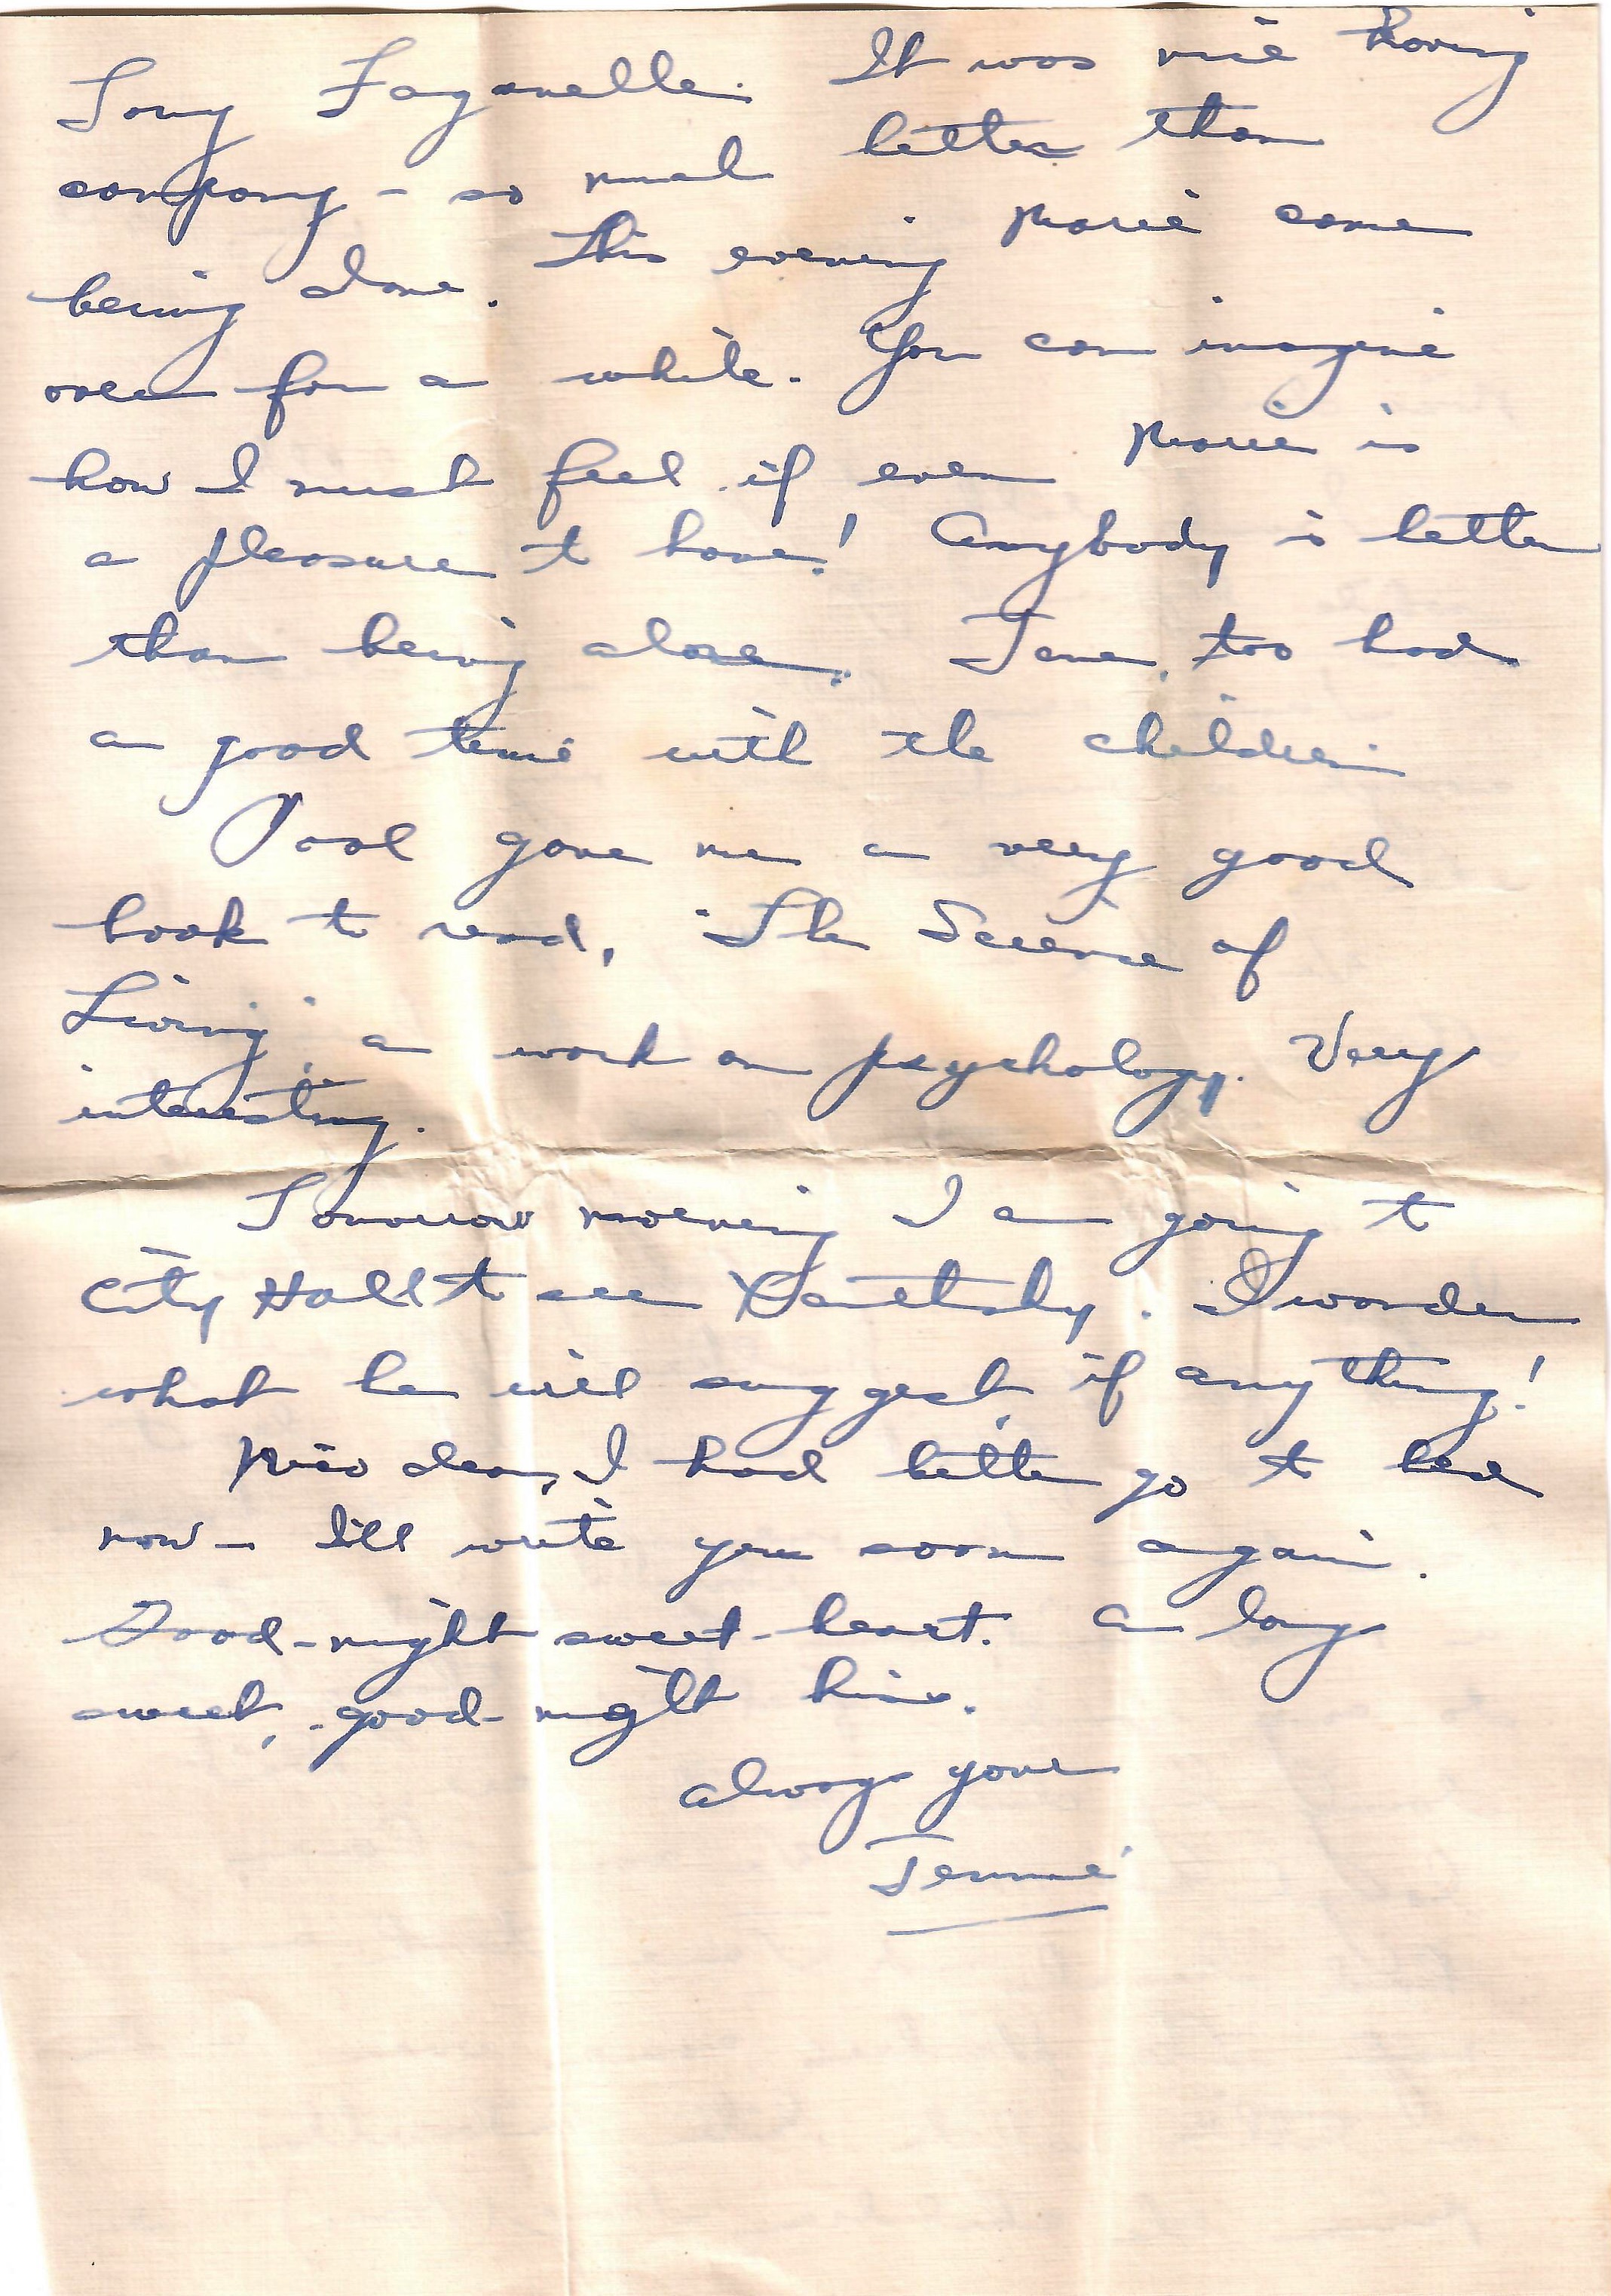 Tony Faganelle. It was nice having
company - so much better than
being alone. This evening Marie came
over for a while. You can imagine
how I must feel if even Marie is
a pleasure to have! Anybody is better
than being alone. Jane, too had
a good time with the children.
Paul gave me a very good
book to read, "The Science of
Living", a work on psychology. Very
interesting.
Tomorrow morning I am going to
City Hall to see . I wonder
what he will suggest, if anything!
dear, I had better go to bed
now - I'll write you soon again.
Good-night sweet-heart. A long
sweet, good-night kiss.
Always yours
Jennie